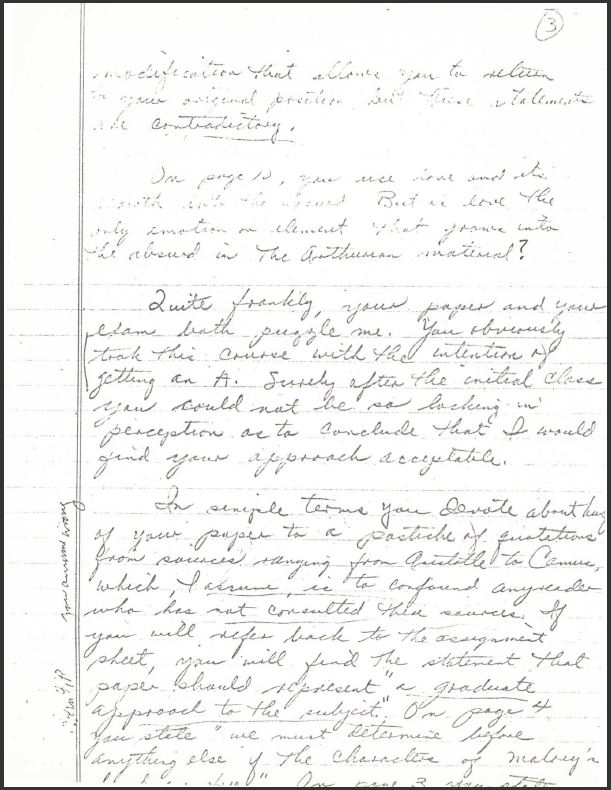 3
modification that allows you to return
to your original position but these statements
are contradictory.
On page 10, you use love and its
growth into the absurd But is love the
only emotion or element that grows into
the absurd in the Arthurian material?
Quite frankly, your paper and your
exam both puzzle me. You obviously
took this course with the intention of
getting an A. Surely after the initial class
you could not be so lacking in
perception as to conclude that I would
find your approach acceptable.
In simple terms you devote about half
of your paper to a pastiche of quotations
from sources ranging from Aristotle to Camus,
which, I assume, is to confound any reader
who has not consulted these sources. If
you will refer back to the assignment
sheet, you will find the statement that
paper should represent "a graduate
approach to the subject." On page 4
you state "we must determine before
anything else if the characters of Malory's
On page 3 you state
you assume wrong